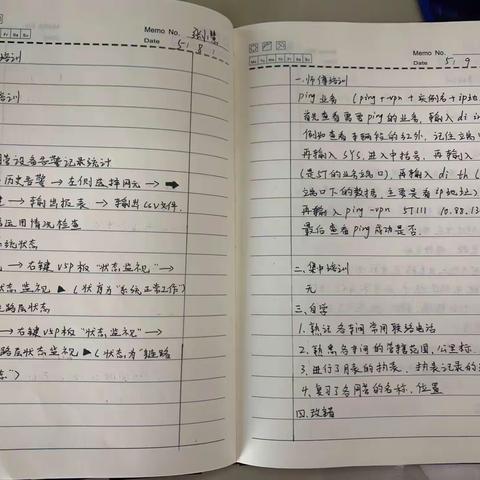 Memo No. 张小慧
Fr Sa Su
Date 5 / 8 /
培训
培训
设备告警记录统计
历史告警 → 左侧选择网元 →
→ 输出报表 → 输出CSV文件.
应用情况检查
统状态
→ 右键 V5P板 "状态监视" →
状态监视 ▶ (状态为"系统正常工作")
路层状态
→ 右键 V5P板 "状态监视" →
路层状态监视 ▶ (状态为"链路
态")
Memo No.
Mo Tu We Th Fr Sa Su
Date 5 / 9
一. 师傅培训
ping 业务 (ping + -vpn + 实例名 + ip地
首先查看需要ping的业务, 输入 di in
例如查看车辆段的红外, 记住
再输入 SYS, 进入中括号, 再输入
(是5T的业务端口), 再输入 di th (
端口下的数据, 主要是看ip地址)
再输入 ping -vpn 5T111 10.83.13
最后查看ping成功是否.
二. 集中培训
无
三. 自学
1. 熟记各车间常用联络电话
2. 熟悉各车间的管辖范围, 公里标
3. 进行了月表的执表, 执表记录的
4. 复习了各网管的名称, 位置
四. 改错